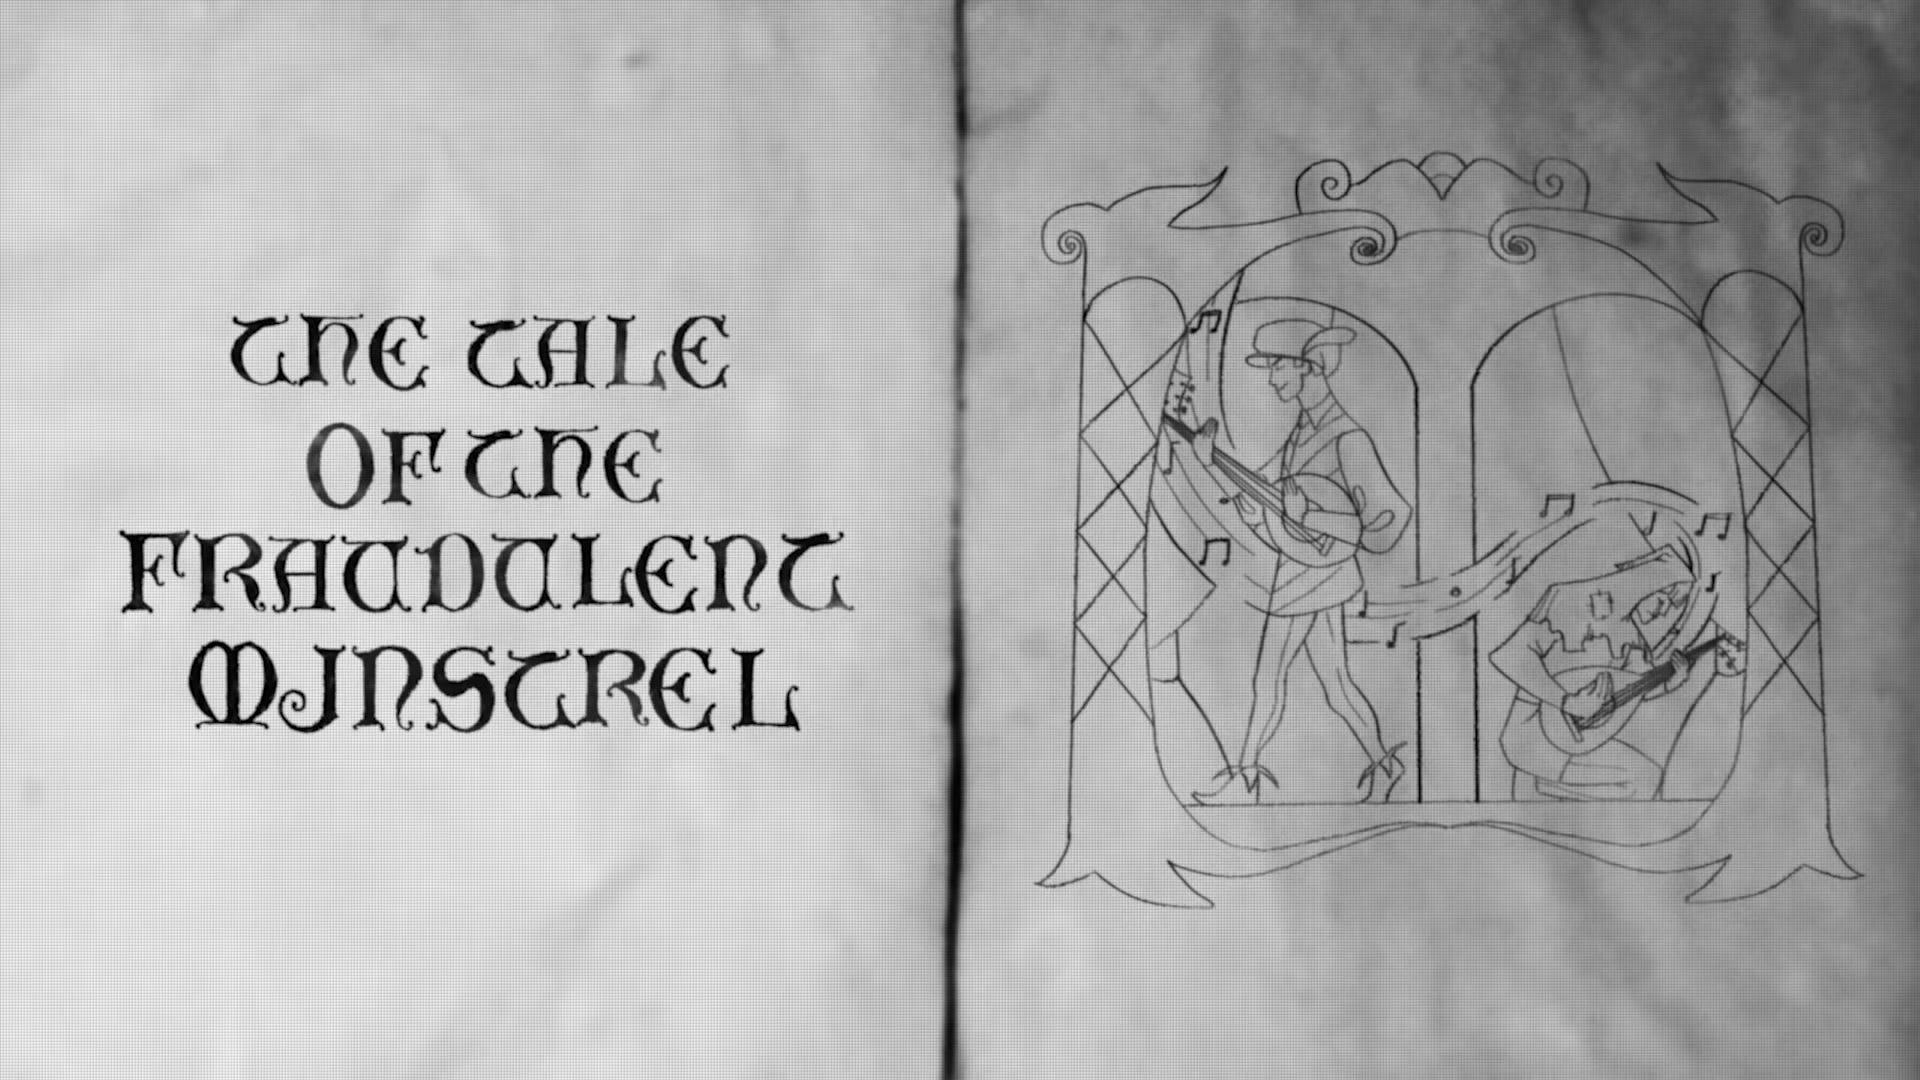 THE TALE
OF THE
FRAUDULENT
MINSTREL